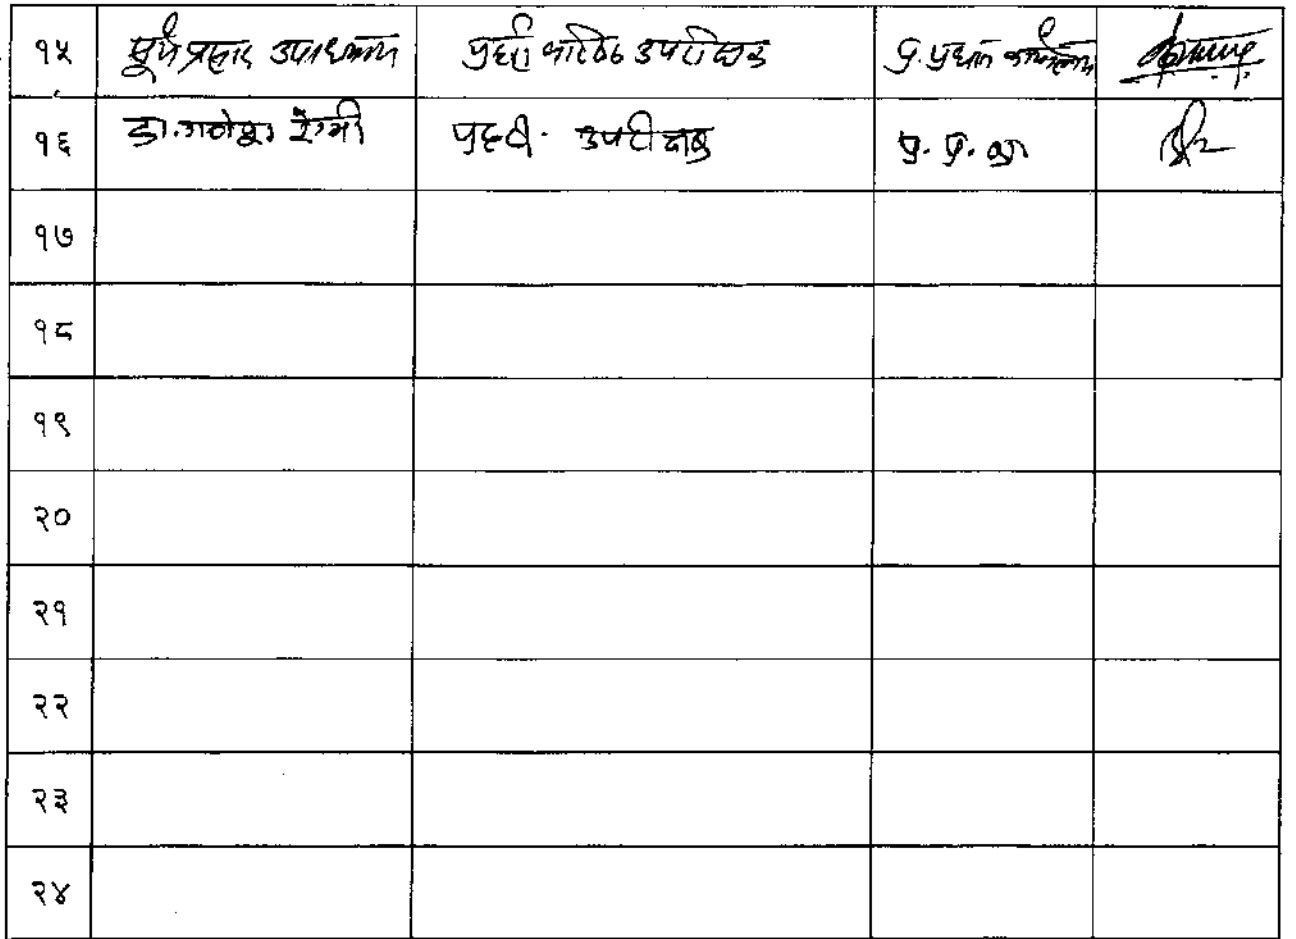 १५ सूर्य प्रसाद उपाध्याय प्रहरी वरिष्ठ उपरीक्षक प्र. प्रधान कार्यालय
१६ डा. गणेश रेग्मी प्रहरी. उपरीक्षक प्र. प्र. का
१७
१८
१९
२०
२१
२२
२३
२४